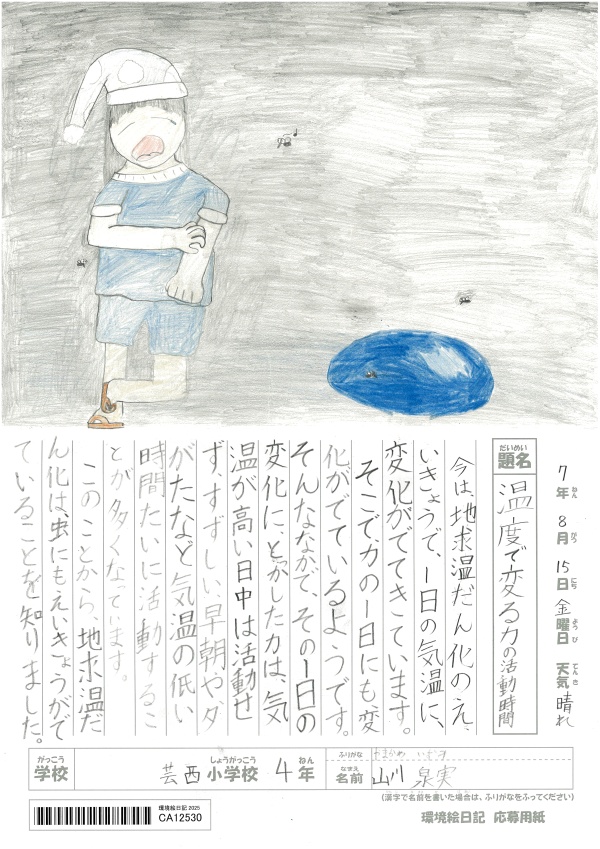 7年ねん 8月がつ 15日にち 金曜日ようび 天気てんき 晴れ
だいめい
題名
温度で変る力の活動時間
今は、地求温だん化のえ
いきょうで、1日の気温に、
変化がでてきています。
そこで力の一日にも、変
化がでているようです。
そんななかで、その1日の
変化に、どかした力は、気
温が高い日中は活動せ
ず、すずしい早朝やダ
がたなど気温の低い
時間たいに活動するこ
とが多くなています。
このことから、地求温だ
ん化は、虫にもえいきょうがで
ていることを知りました。
がっこう
学校
芸西小学校しょうがっこう 4年ねん
ふりがな
やまかわ いずみ
なまえ
名前
山川 泉実
(漢字で名前を書いた場合は、ふりがなをふってください)
環境絵日記 2025
CA12530
環境絵日記 応募用紙